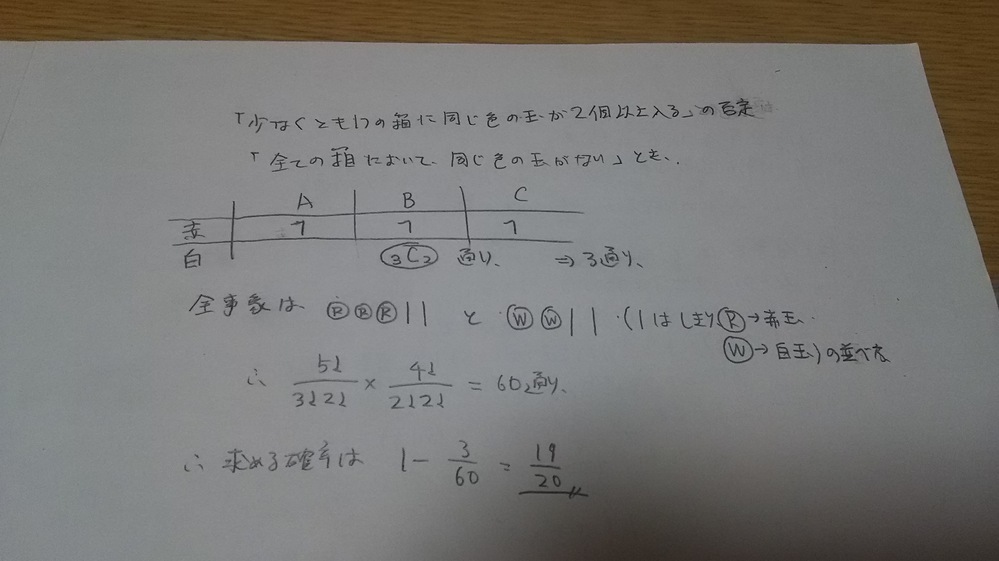 「少なくとも1つの箱に同じ色の玉が2個以上入る」の否定
「全ての箱において、同じ色の玉がない」とき、
A B C
赤 1 1 1
白 ₃C₂ 通り、 ⇒ 3通り、
全事象は ⓇⓇⓇ|| と ⓌⓌ|| (|はしきり、Ⓡ→赤玉、
Ⓦ→白玉)の並べ方
∴ 5!/3!2! × 4!/2!2! = 60通り、
∴ 求める確率は 1 - 3/60 = 19/20